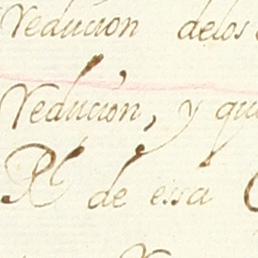 reducion delos
reducion, y qu
Rl de essa